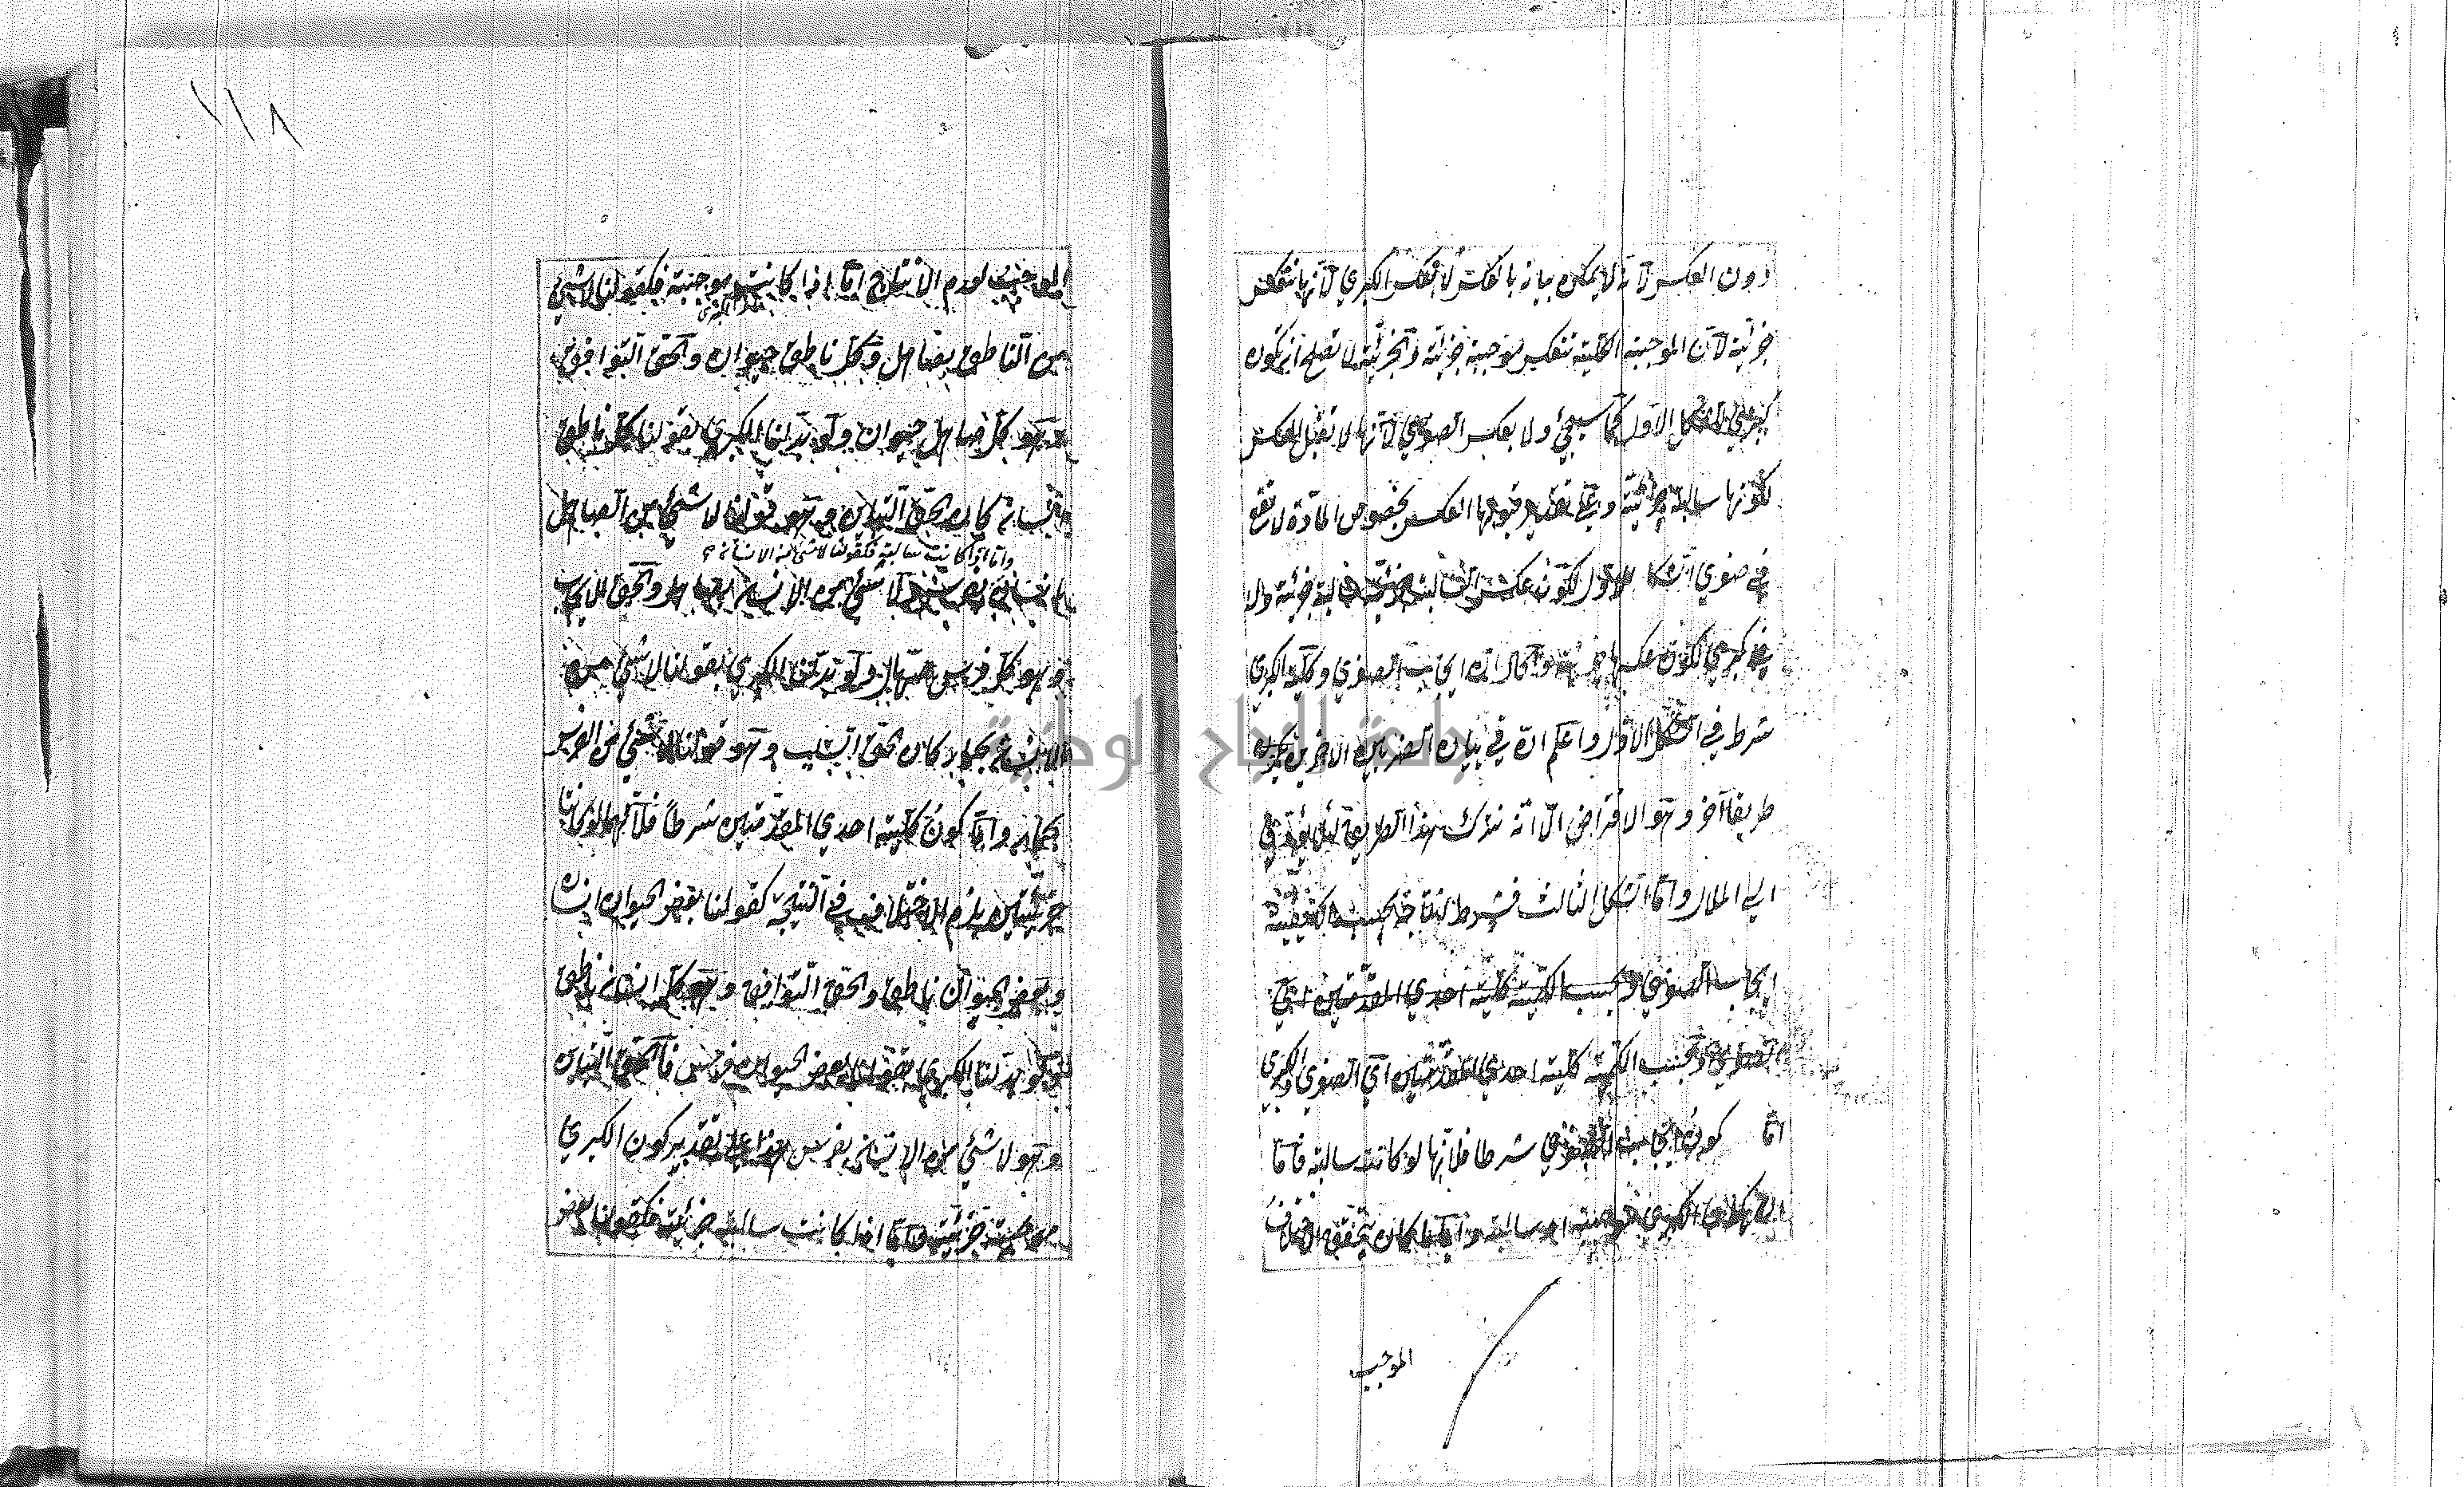 دون العكس لانه لا يمكن بيانه بالعكس لا بعكس الكبري لانها تنعكس
جزئية لان الموجبة الكلية تنعكس موجبة جزئية والجزئية لا تصلح ان تكون
كبري للشكل الاول كما سيجئ ولا بعكس الصغري لانها لا تقبل العكس
لكونها سالبة جزئية وعلى تقدير قبولها العكس بخصوص المادة لا تقع
في صغري الشكل الاول لكون عكس السالبة الجزئية سالبة جزئية ولا
في كبري لكون عكسها جزئية والحال ان ايجاب الصغري وكلية الكبري
شرط في الشكل الاول واعلم ان في بيان الضربين الاخيرين
طريقا آخر وهو الافتراض الا انه نترك هذا الطريق لئلا يؤدي
الي الملال واما الشكل الثالث فشرط انتاجه بحسب الكيفية
ايجاب الصغري وبحسب الكمية كلية احدي المقدمتين اي
الصغري وبحسب الكمية كلية احدي المقدمتين اي الصغري والكبري
اما كون ايجاب الصغري شرطا فلانها لو كانت سالبة فاما
ان تكون الكبري موجبة او سالبة وايا ما كان يتحقق الاختلاف
الموجب
١١٨
الموجب لعدم الانتاج اما اذا كانت موجبة فكقولنا لا شئ
من الناطق بصاهل وكل ناطق حيوان والحق التوافق
وهو كل صاهل حيوان ولو بدلنا الكبري بقولنا كل ناطق
انسان كان الحق التباين وهو قولنا لا شئ من الصاهل
واما اذا كانت سالبة فكقولنا لا شئ من الانسان
بانسان لا شئ من الانسان بصاهل والحق الايجاب
وهو كل فرس صهال ولو بدلنا الكبري بقولنا لا شئ من
الانسان بحمار كان الحق السلب وهو قولنا لا شئ من الفرس
بحمار واما كون كلية احدي المقدمتين شرطا فلانهما لو كانتا
جزئيتين يلزم الاختلاف في النتيجة كقولنا بعض الحيوان انسان
وبعض الحيوان ناطق والحق التوافق وهو كل انسان ناطق
ولو بدلنا الكبري بقولنا بعض الحيوان فرس فالحق التباين
وهو لا شئ من الانسان بفرس هذا على تقدير كون الكبري
موجبة جزئية واما اذا كانت سالبة جزئية فكقولنا بعض
جامعة النجاح الوطنية